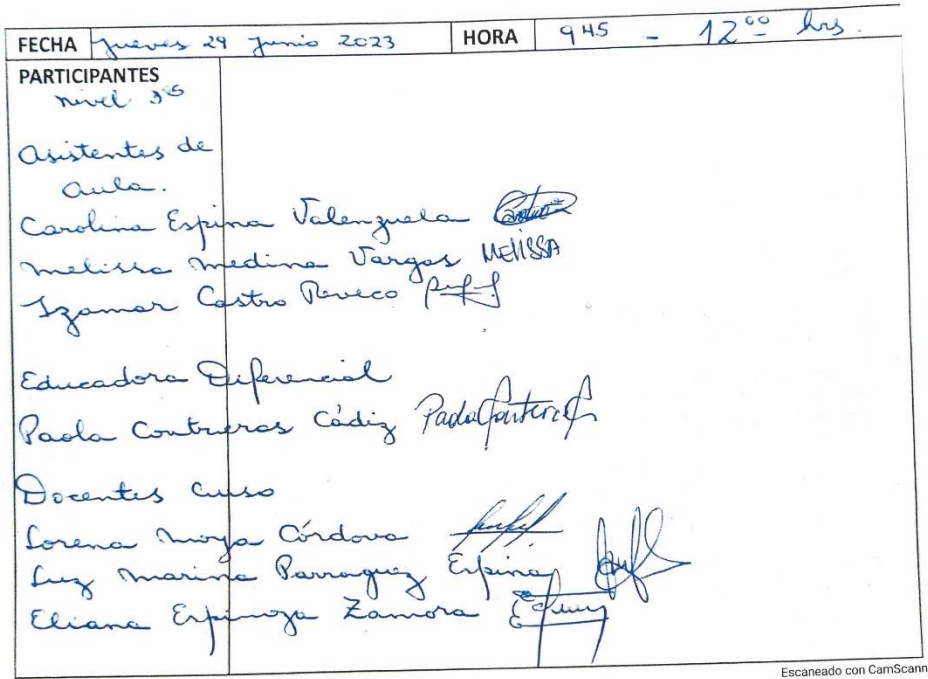 FECHA Jueves 29 Junio 2023 HORA 9 45 - 12 00 hrs.
PARTICIPANTES
nivel 3os
Asistentes de
aula.
Carolina Espina Valenzuela
Melissa Medina Vargas MElISSA
Izamar Castro Reveco
Educadora Diferencial
Paola Contreras Cádiz Paola Contreras
Docentes curso
Lorena Moya Córdova
Luz Marina Parraguez Espina
Eliana Espinoza Zamora
Escaneado con CamScann